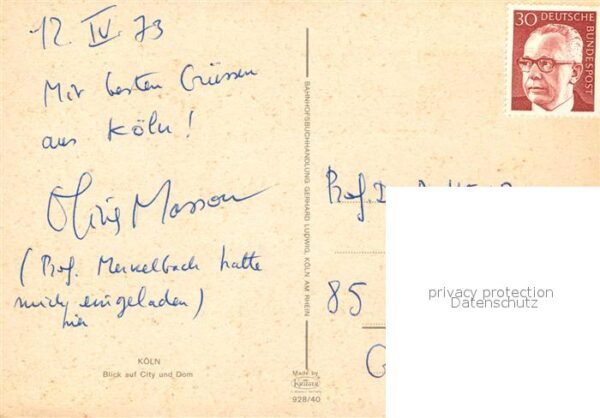 12. IV. 73
Mit besten Grüssen
aus Köln!
Masson
(Prof. Merkelbach hatte
mich eingeladen)
hier
KÖLN
Blick auf City und Dom
BAHNHOFSBUCHHANDLUNG GERHARD LUDWIG, KÖLN AM RHEIN
Made by
Krüger
928/40
30 DEUTSCHE
BUNDESPOST
Prof. D
85
privacy protection
Datenschutz